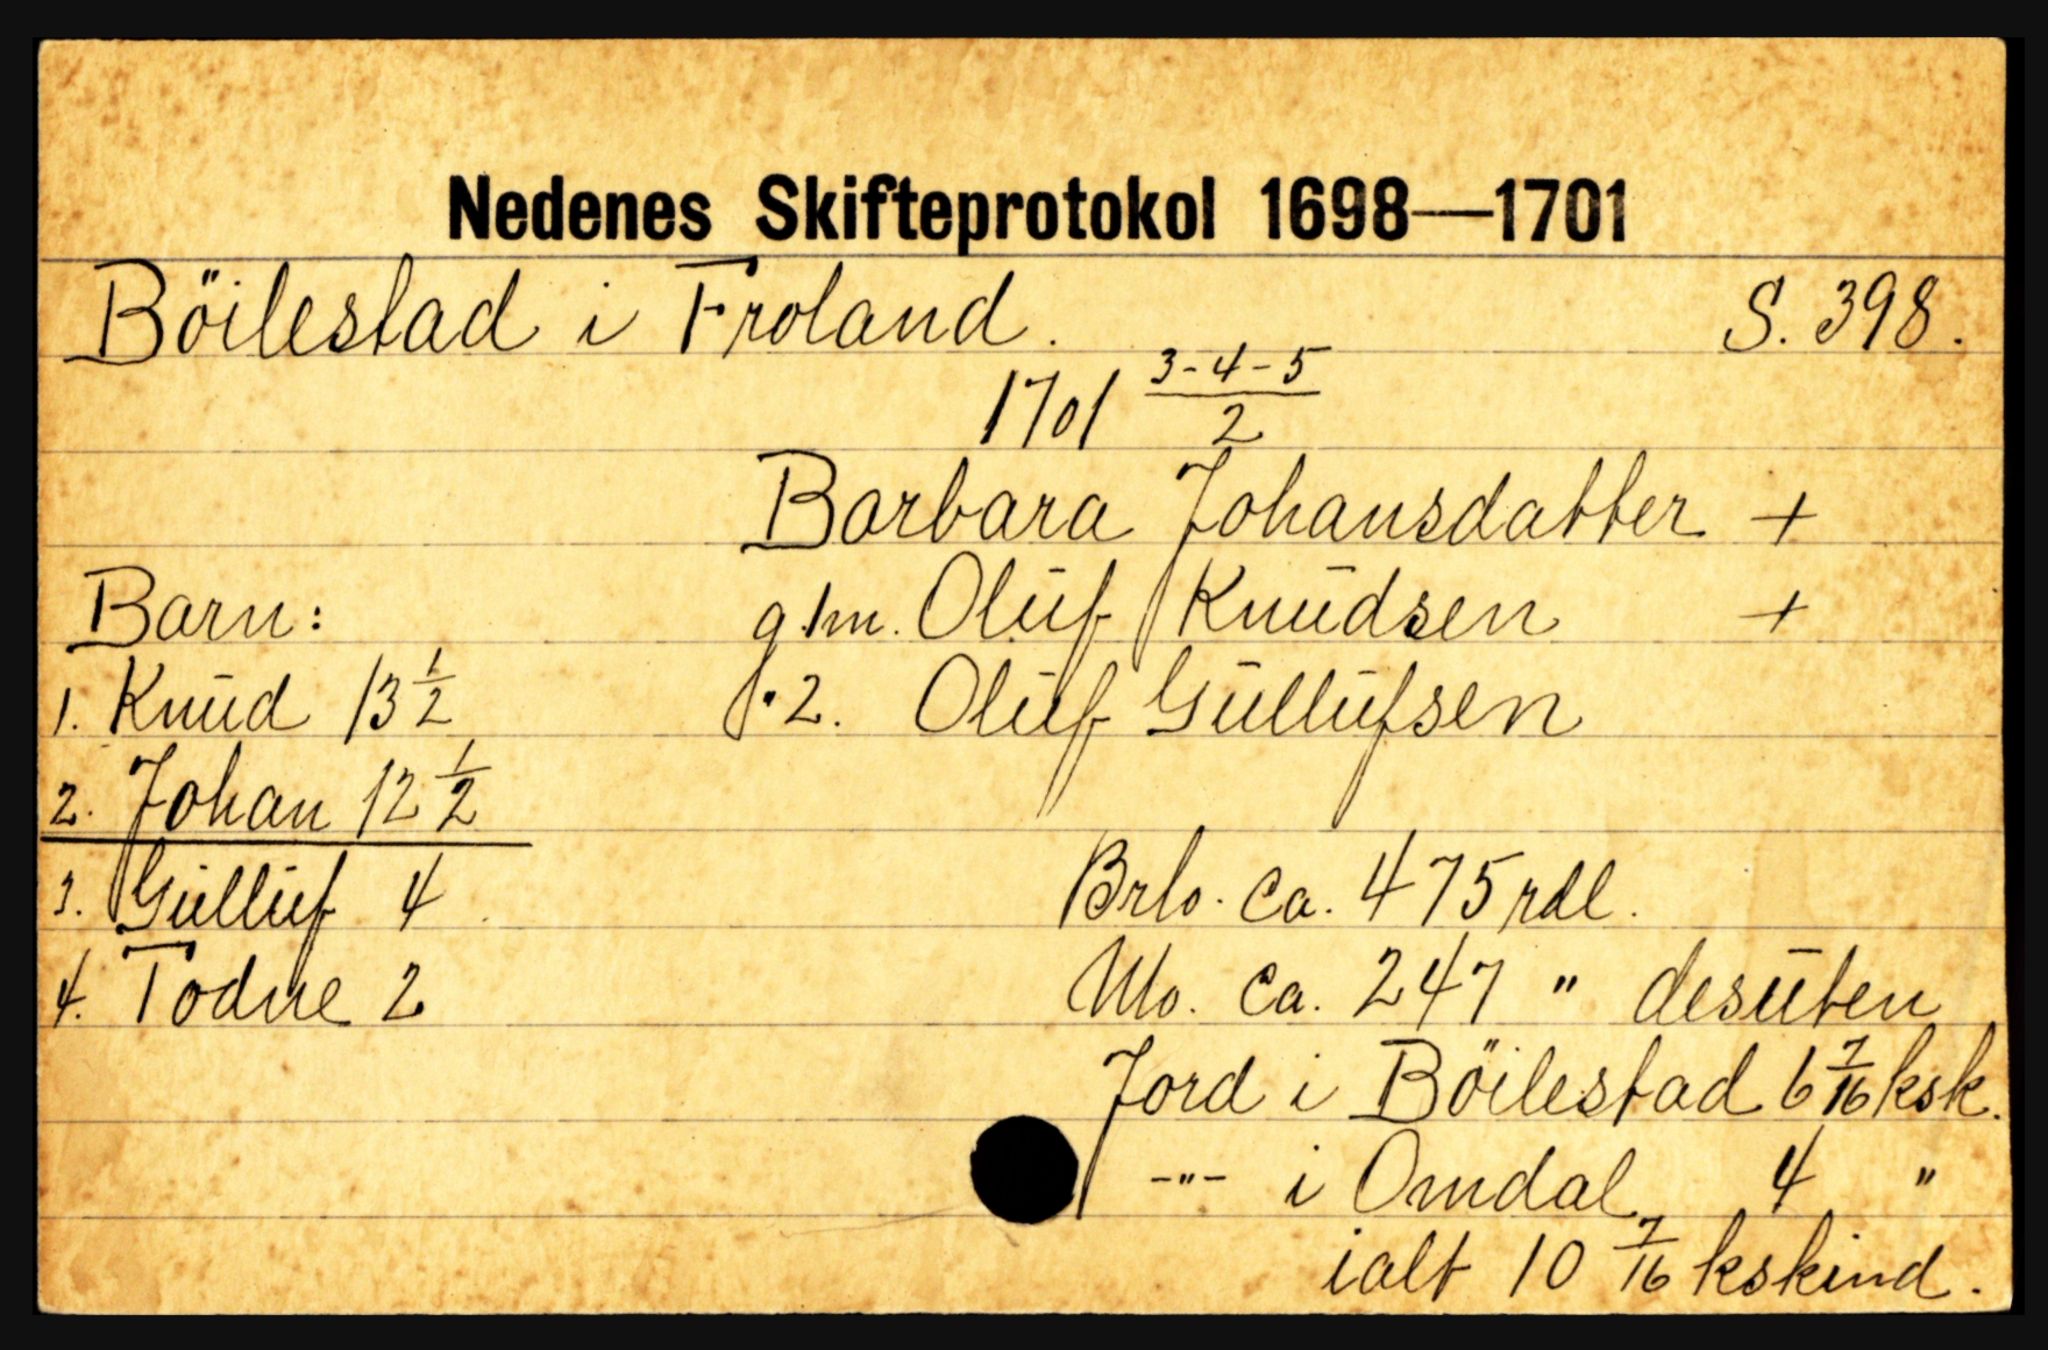 Nedenes Skifteprotokol 1698—1701
Böilestad i Froland. S. 398.
1701 3-4-5/2
Barbara Johansdatter +
g.1m. Oluf Knudsen +
" 2. Oluf Gullufsen
Barn:
1. Knud 13 1/2
2. Johan 12 1/2
3. Gulluf 4
4. Todne 2
Brto. Ca. 475 rdl.
Nto. Ca. 247 " desuten
Jord i Böilestad 6 7/16 ksk.
-"- i Omdal 4 "
ialt 10 7/16 kskind.